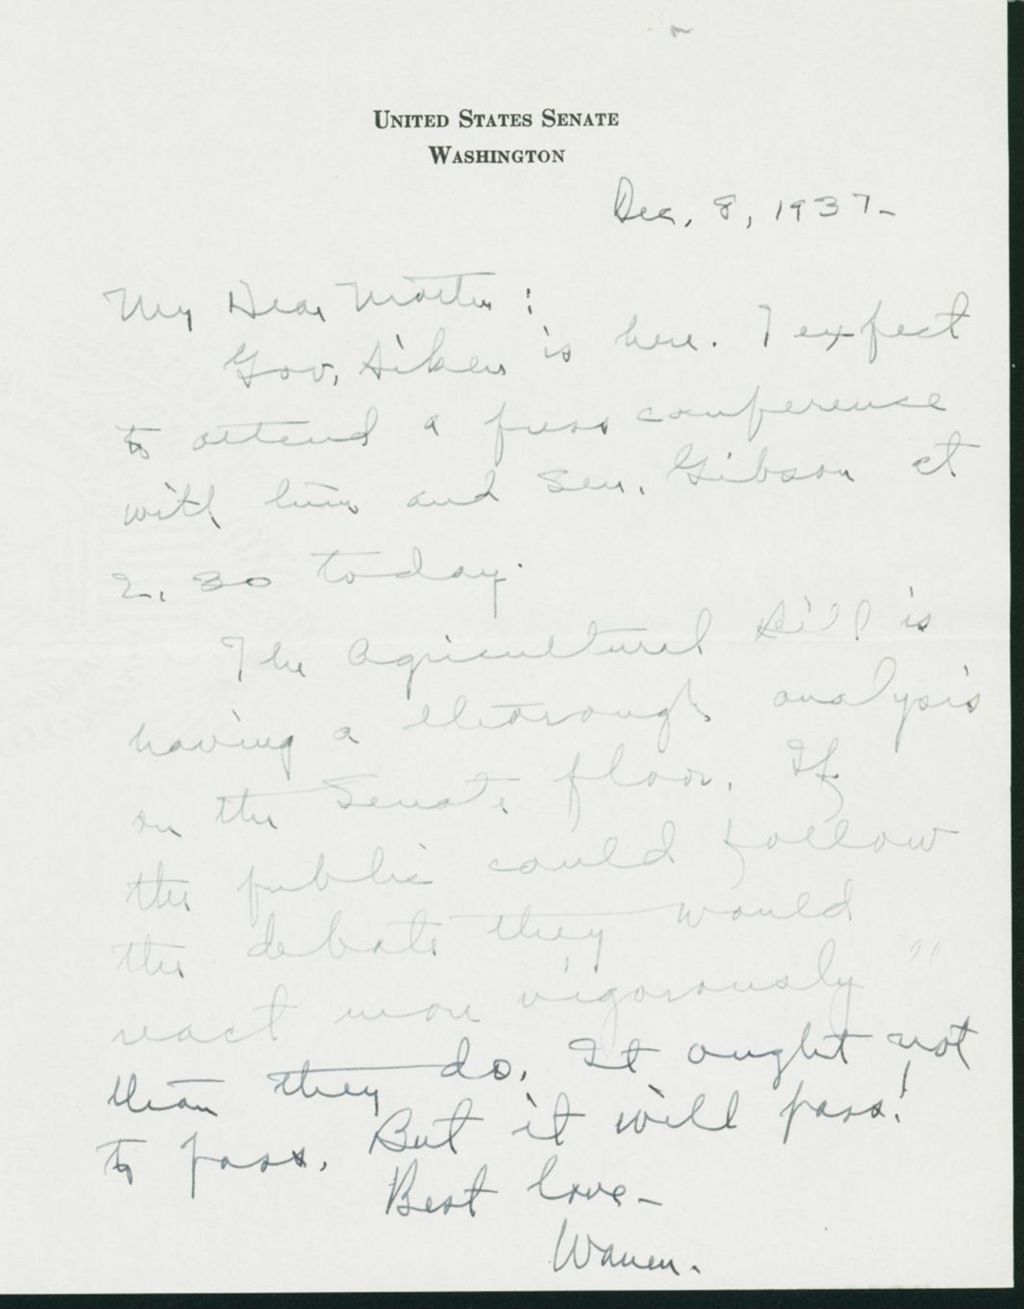 UNITED STATES SENATE
WASHINGTON
Dec. 8, 1937-
My Dear Mother:
Gov. Aiken is here. I expect
to attend a press conference
with him and Sen. Gibson at
2.30 today.
The Agricultural Bill is
having a thorough analysis
on the Senate floor. If
the public could follow
the debate they would
react more vigorously
than they do. It ought not
to pass. But it will pass!
Best love-
Warren.